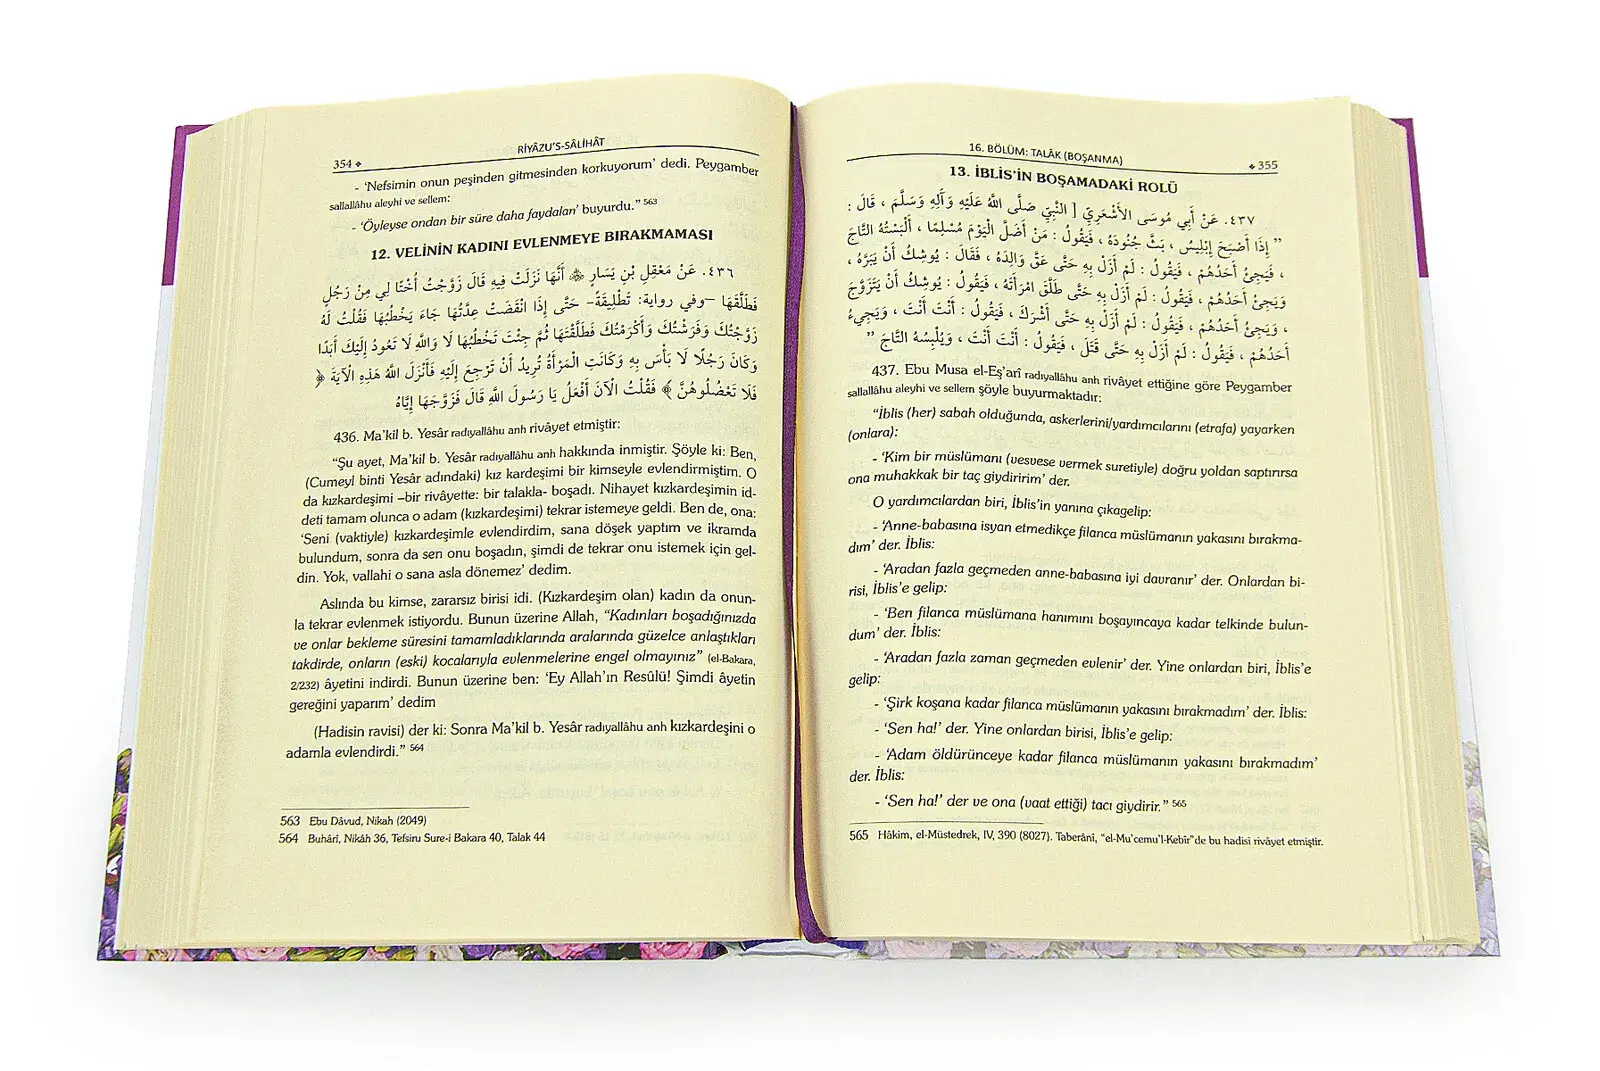 354 ❖ RİYÂZU'S-SÂLİHÂT
- 'Nefsimin onun peşinden gitmesinden korkuyorum' dedi. Peygamber
sallallâhu aleyhi ve sellem:
- 'Öyleyse ondan bir süre daha faydalan' buyurdu." 563
12. VELİNİN KADINI EVLENMEYE BIRAKMAMASI
٤٣٦. عَنْ مَعْقِلِ بْنِ يَسَارٍ ﷺ أَنَّهَا نَزَلَتْ فِيهِ قَالَ زَوَّجْتُ أُخْتًا لِي مِنْ رَجُلٍ
فَطَلَّقَهَا –وفي رواية: تَطْلِيقَةً– حَتَّى إِذَا انْقَضَتْ عِدَّتُهَا جَاءَ يَخْطُبُهَا فَقُلْتُ لَهُ
زَوَّجْتُكَ وَفَرَشْتُكَ وَأَكْرَمْتُكَ فَطَلَّقْتَهَا ثُمَّ جِئْتَ تَخْطُبُهَا لَا وَاللَّهِ لَا تَعُودُ إِلَيْكَ أَبَدًا
وَكَانَ رَجُلًا لَا بَأْسَ بِهِ وَكَانَتِ الْمَرْأَةُ تُرِيدُ أَنْ تَرْجِعَ إِلَيْهِ فَأَنْزَلَ اللَّهُ هَذِهِ الْآيَةَ ﴿
فَلَا تَعْضُلُوهُنَّ ﴾ فَقُلْتُ الْآنَ أَفْعَلُ يَا رَسُولَ اللَّهِ قَالَ فَزَوَّجَهَا إِيَّاهُ
436. Ma'kil b. Yesâr radıyallâhu anh rivâyet etmiştir:
"Şu ayet, Ma'kil b. Yesâr radıyallâhu anh hakkında inmiştir. Şöyle ki: Ben,
(Cumeyl binti Yesâr adındaki) kız kardeşimi bir kimseyle evlendirmiştim. O
da kızkardeşimi –bir rivâyette: bir talakla- boşadı. Nihayet kızkardeşimin id-
deti tamam olunca o adam (kızkardeşimi) tekrar istemeye geldi. Ben de, ona:
'Seni (vaktiyle) kızkardeşimle evlendirdim, sana döşek yaptım ve ikramda
bulundum, sonra da sen onu boşadın, şimdi de tekrar onu istemek için gel-
din. Yok, vallahi o sana asla dönemez' dedim.
Aslında bu kimse, zararsız birisi idi. (Kızkardeşim olan) kadın da onun-
la tekrar evlenmek istiyordu. Bunun üzerine Allah, "Kadınları boşadığınızda
ve onlar bekleme süresini tamamladıklarında aralarında güzelce anlaştıkları
takdirde, onların (eski) kocalarıyla evlenmelerine engel olmayınız" (el-Bakara,
2/232) âyetini indirdi. Bunun üzerine ben: 'Ey Allah'ın Resûlü! Şimdi âyetin
gereğini yaparım' dedim
(Hadisin ravisi) der ki: Sonra Ma'kil b. Yesâr radıyallâhu anh kızkardeşini o
adamla evlendirdi." 564
563 Ebu Dâvud, Nikah (2049)
564 Buhârî, Nikâh 36, Tefsiru Sure-i Bakara 40, Talak 44
16. BÖLÜM: TALÂK (BOŞANMA) ❖ 355
13. İBLİS'İN BOŞAMADAKİ ROLÜ
٤٣٧. عَنْ أَبِي مُوسَى الأَشْعَرِيِّ [ النَّبِيِّ صَلَّى اللَّهُ عَلَيْهِ وَآلِهِ وَسَلَّمَ ، قَالَ :
" إِذَا أَصْبَحَ إِبْلِيسُ ، بَثَّ جُنُودَهُ ، فَيَقُولُ : مَنْ أَضَلَّ الْيَوْمَ مُسْلِمًا ، أَلْبَسْتُهُ التَّاجَ
، فَيَجِيْءُ أَحَدُهُمْ ، فَيَقُولُ : لَمْ أَزَلْ بِهِ حَتَّى عَقَّ وَالِدَهُ ، فَقَالَ : يُوشِكُ أَنْ يَبَرَّهُ ،
وَيَجِيْءُ أَحَدُهُمْ ، فَيَقُولُ : لَمْ أَزَلْ بِهِ حَتَّى طَلَّقَ امْرَأَتَهُ ، فَيَقُولُ : يُوشِكُ أَنْ يَتَزَوَّجَ
، وَيَجِيْءُ أَحَدُهُمْ ، فَيَقُولُ : لَمْ أَزَلْ بِهِ حَتَّى أَشْرَكَ ، فَيَقُولُ : أَنْتَ أَنْتَ ، وَيَجِيءُ
أَحَدُهُمْ ، فَيَقُولُ : لَمْ أَزَلْ بِهِ حَتَّى قَتَلَ ، فَيَقُولُ : أَنْتَ أَنْتَ ، وَيُلْبِسُهُ التَّاجَ "
437. Ebu Musa el-Eş'arî radıyallâhu anh rivâyet ettiğine göre Peygamber
sallallâhu aleyhi ve sellem şöyle buyurmaktadır:
"İblis (her) sabah olduğunda, askerlerini/yardımcılarını (etrafa) yayarken
(onlara):
- 'Kim bir müslümanı (vesvese vermek suretiyle) doğru yoldan saptırırsa
ona muhakkak bir taç giydiririm' der.
O yardımcılardan biri, İblis'in yanına çıkagelip:
- 'Anne-babasına isyan etmedikçe filanca müslümanın yakasını bırakma-
dım' der. İblis:
- 'Aradan fazla geçmeden anne-babasına iyi davranır' der. Onlardan bi-
risi, İblis'e gelip:
- 'Ben filanca müslümana hanımını boşayıncaya kadar telkinde bulun-
dum' der. İblis:
- 'Aradan fazla zaman geçmeden evlenir' der. Yine onlardan biri, İblis'e
gelip:
- 'Şirk koşana kadar filanca müslümanın yakasını bırakmadım' der. İblis:
- 'Sen ha!' der. Yine onlardan birisi, İblis'e gelip:
- 'Adam öldürünceye kadar filanca müslümanın yakasını bırakmadım'
der. İblis:
- 'Sen ha!' der ve ona (vaat ettiği) tacı giydirir." 565
565 Hâkim, el-Müstedrek, IV, 390 (8027). Taberânî, "el-Mu'cemu'l-Kebîr"de bu hadisi rivâyet etmiştir.